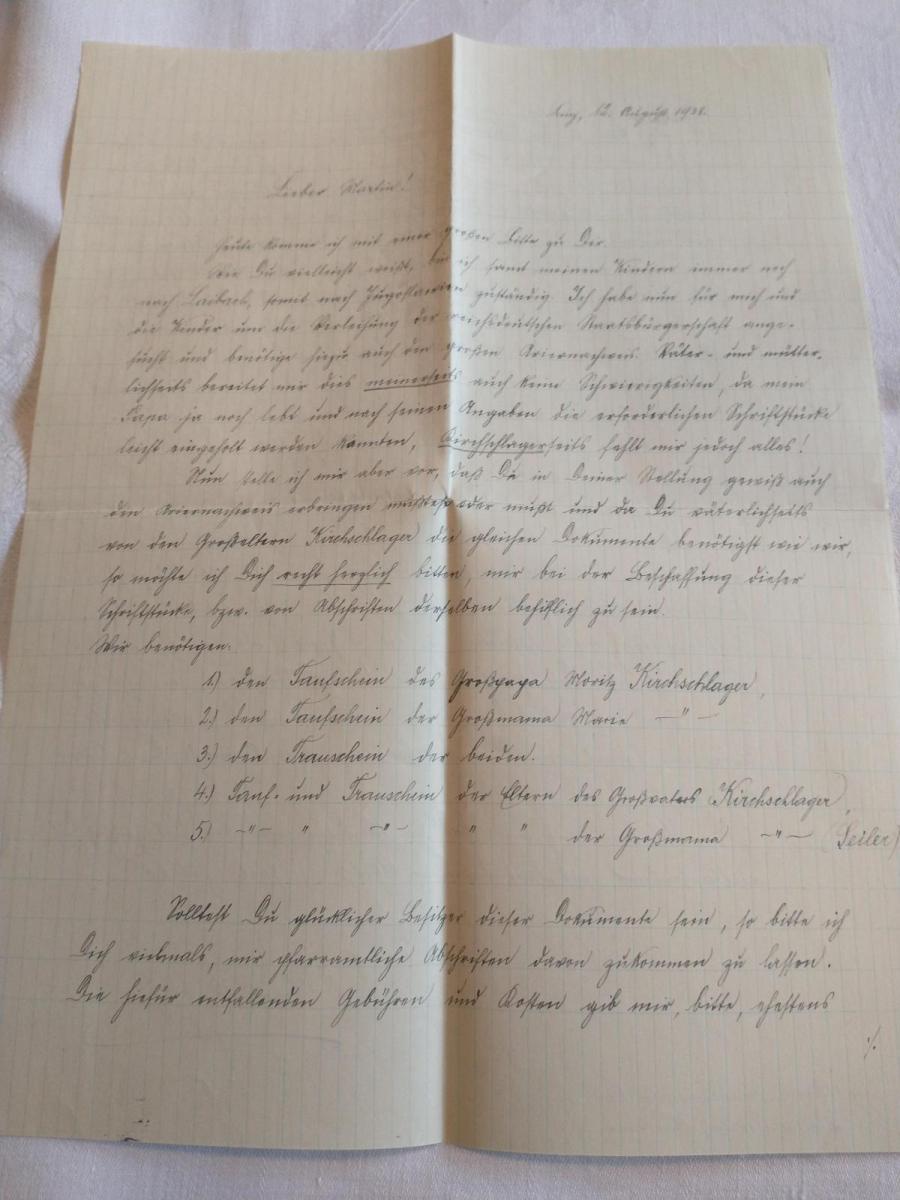 12. August 1938.
Lieber Martin!
Heute komme ich mit einer großen Bitte zu Dir.
Wie Du vielleicht weißt, bin ich samt meinen Kindern immer noch
nach Laibach, somit nach Jugoslawien zuständig. Ich habe nun für mich und
die Kinder um die Verleihung der reichsdeutschen Staatsbürgerschaft ange-
sucht und benötige hiezu auch den großen Ariernachweis. Väter- und mütter-
licherseits bereitet mir dies meinerseits auch keine Schwierigkeiten, da mein
Papa ja noch lebt und nach seinen Angaben die erforderlichen Schriftstücke
leicht eingeholt werden konnten, Kirchschlagerseits fehlt mir jedoch alles!
Nun stelle ich mir aber vor, daß Du in Deiner Stellung gewiß auch
den Ariernachweis erbringen mußtest oder mußt und da Du väterlichseits
von den Großeltern Kirchschlager die gleichen Dokumente benötigst wie wir,
so möchte ich Dich recht herzlich bitten, mir bei der Beschaffung dieser
Schriftstücke, bzw. von Abschriften derselben behilflich zu sein.
Wir benötigen:
1.) den Taufschein des Großpapa Moritz Kirchschlager,
2.) den Taufschein der Großmama Marie —"—
3.) den Trauschein der beiden.
4.) Tauf- und Trauschein der Eltern des Großvaters (Kirchschlager),
5.) —"— " —"— " " der Großmama —"— (Seiler)
Solltest Du glücklicher Besitzer dieser Dokumente sein, so bitte ich
Dich vielmals, mir pfarramtliche Abschriften davon zukommen zu lassen.
Die hiefür entfallenden Gebühren und Kosten gib mir, bitte, ehestens
./.